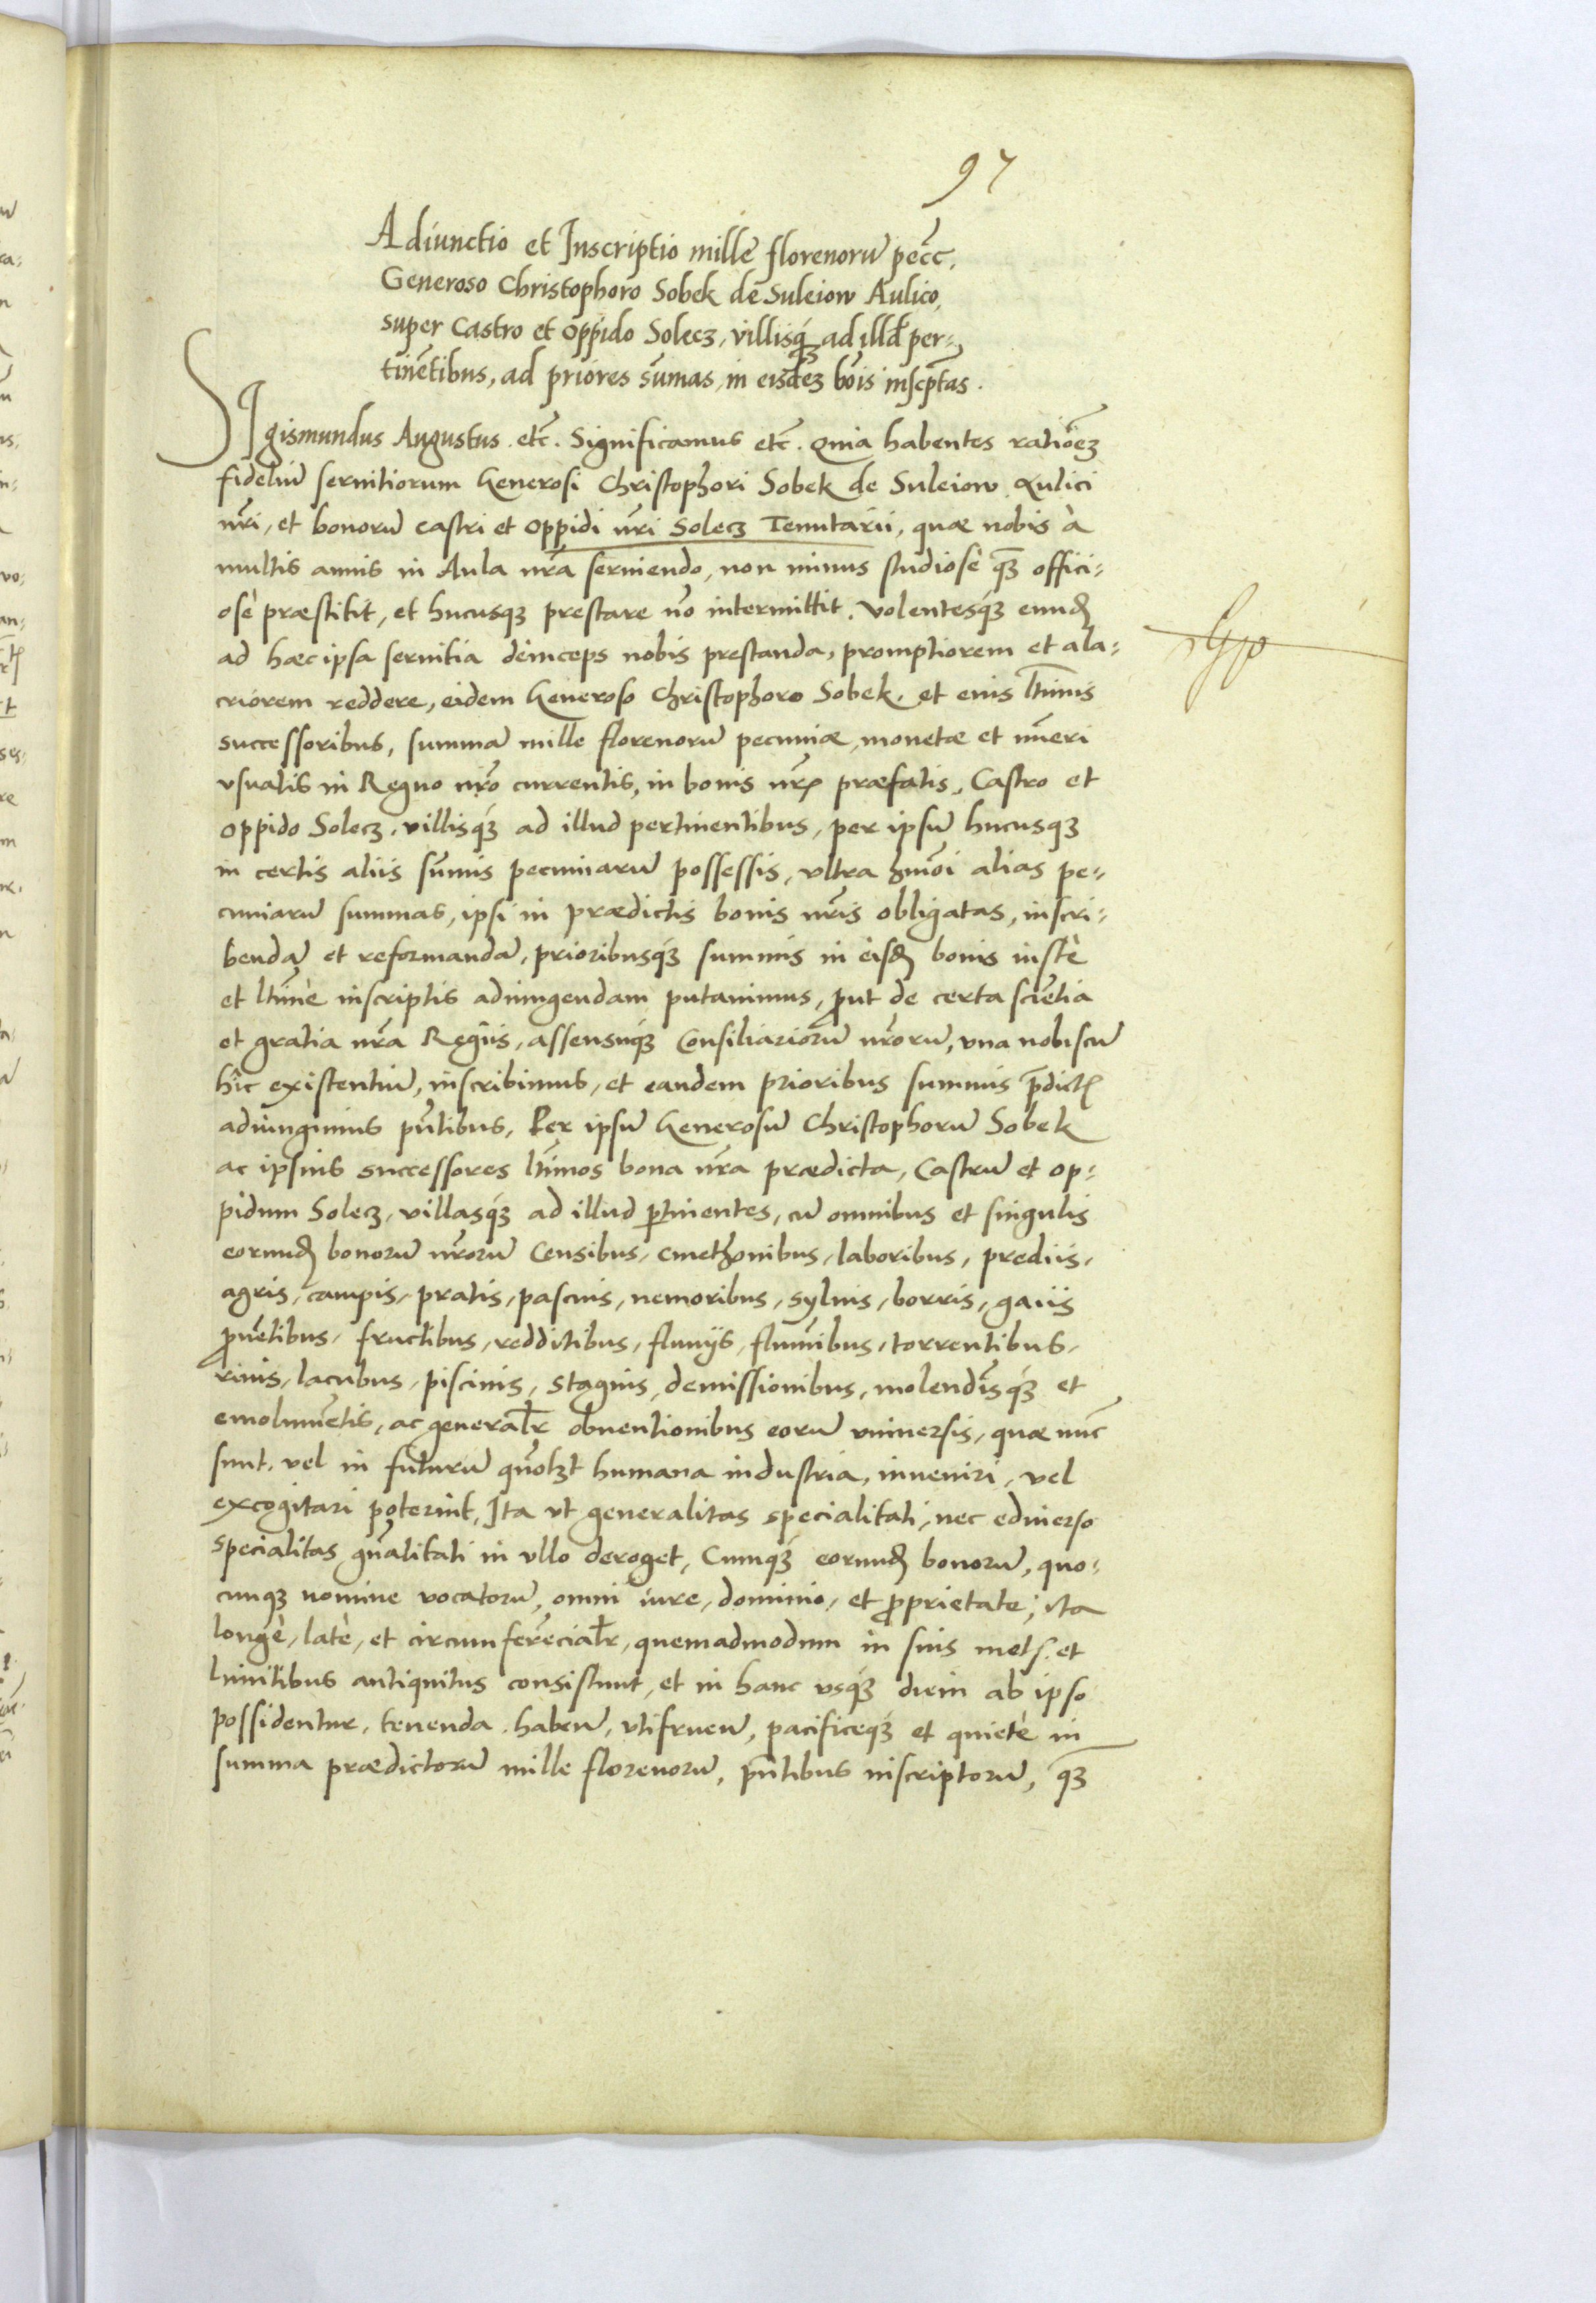 97
Adiunctio et Inscriptio mille florenorū pecc.
Generoso Christophoro Sobek de Suleiow Aulico,
super Castro et oppido Solecz, villisq́ꝫ ad illd per-
tinẽtibus, ad priores sũmas, in eisdẽ bõis inscptas.
SIgismundus Augustus etc̃. Significamus etc̃. Quia habentes ratiõeꝫ
fideliũ seruitiorum Generosi Christophori Sobek de Suleiow Aulici
nr̃i, et bonorū castri et oppidi nr̃i Solecz Tenutarii, quæ nobis à
multis annis in Aula nr̃a seruiendo, non minus studiosè qꝫ̃ offici-
osè præstitit, et hucusqꝫ prestare nõ intermittit. Volentesq́ꝫ eund
ad hæc ipsa seruitia deinceps nobis prestanda, promptiorem et ala-
criorem reddere, eidem Generoso Christophoro Sobek, et eius ltĩmis
successoribus, summã mille florenorū pecuniæ, monetæ et nũeri
vsualis in Regno nr̃o currentis, in bonis nr̃ præfatis, Castro et
oppido Solecz, villisq́ꝫ ad illud pertinentibus, per ipsũ hucusqꝫ
in certis aliis sũmis pecuniarū possessis, vltra hmõi alias pe-
cuniarū summas, ipsi in prædictis bonis nr̃is obligatas, inscri-
bendã et reformandã, prioribusq́ꝫ summis in eisd bonis iustè
et ltĩmè inscriptis adiungendam putauimus, ꝓut de certa sciẽtia
et gratia nr̃a Regiis, assensuq́ꝫ Consiliariorū nr̃orū, vna nobiscũ
hîc existentiũ, inscribimus, et eandem prioribus summis p̃dict
adiungimus pñtibus, Per ipsũ Generosũ Christophorũ Sobek
ac ipsius successores ltĩmos bona nr̃a prædicta, Castrũ et op-
pidum Solecz, villasq́ꝫ ad illud ꝑtinentes, cũ omnibus et singulis
eorund bonorū nr̃orū Censibus, cmethonibus, laboribus, prediis,
agris, campis, pratis, pascuis, nemoribus, syluis, borris, gaiis
ꝓuẽtibus, fructibus, redditibus, fluuijs, flumĩbus, torrentibus,
riuis, lacubus, piscinis, stagnis, demissionibus, molendĩsq́ꝫ et
emolumẽtis, ac generalr obuentionibus eorū vniuersis, quæ nũc
sunt, vel in futurū quõlꝫt humana industria, inueniri, vel
excogitari poterint, Ita vt generalitas specialitati, nec ediuerso
specialitas gñalitati in vllo deroget, Cumq́ꝫ eorund bonorū, quo-
cunqꝫ nomine vocatorū, omni iure, dominio, et ꝓprietate, ita
longè, latè, et circumferẽcialr, quemadmodum in suis met. et
limitibus antiquitus consistunt, et in hanc vsq́ꝫ diem ab ipso
possidentur, tenenda habeñ, vtifrueñ, pacificeq́ꝫ et quietè in
summa prædictorū mille florenorū, pñtibus inscriptorū, qꝫ̃